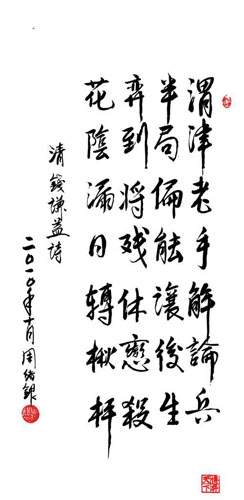 渭津老手解論兵
半局偏能讓後生
弈到將殘休戀殺
花陰漏日轉楸枰
清錢謙益詩
二〇一〇年十月周紹銀